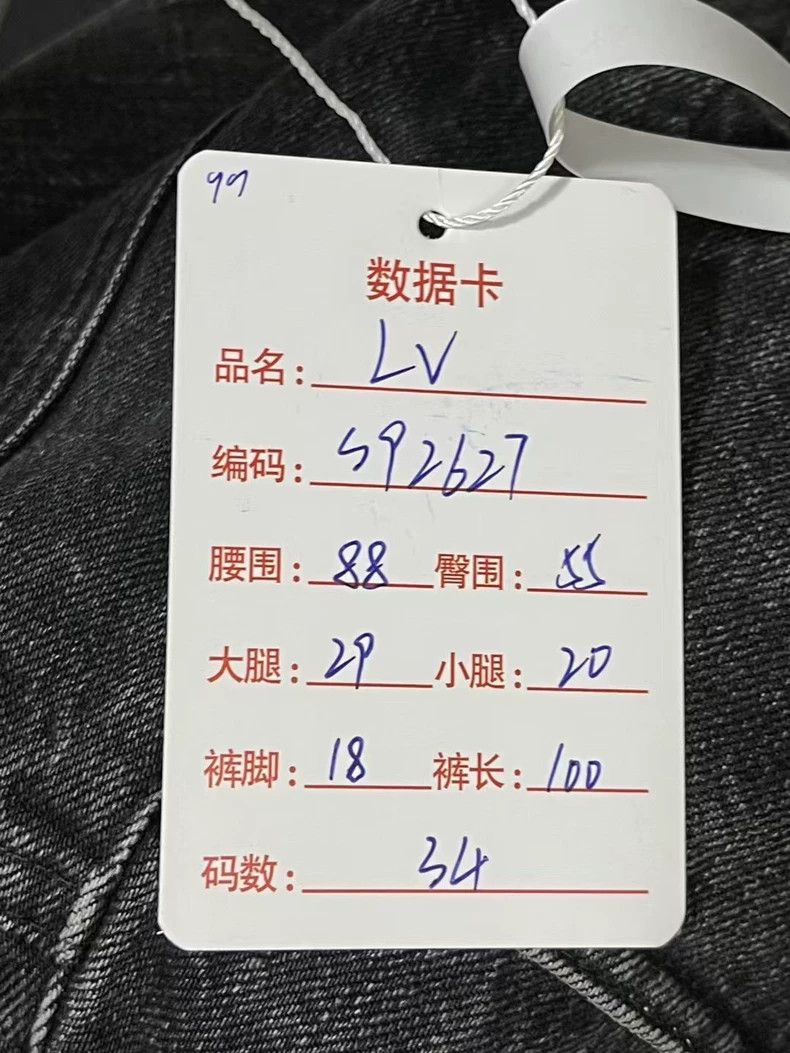 99
数据卡
品名: LV
编码: S92627
腰围: 88 臀围: 55
大腿: 29 小腿: 20
裤脚: 18 裤长: 100
码数: 34